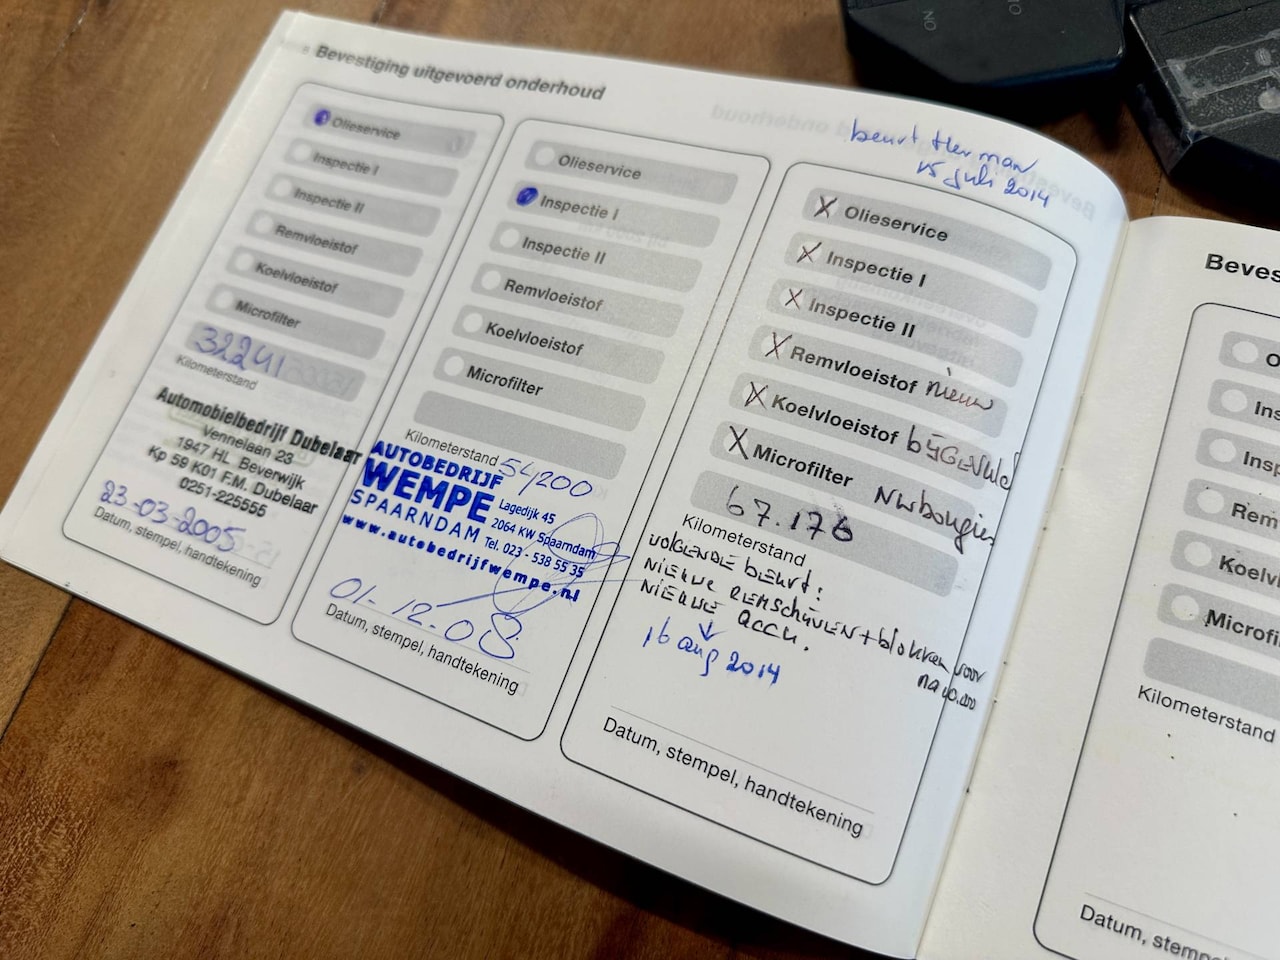 Bevestiging uitgevoerd onderhoud
Olieservice
Inspectie I
Inspectie II
Remvloeistof
Koelvloeistof
Microfilter
32241
Kilometerstand
Automobielbedrijf Dubelaar
Vennelaan 23
1947 HL Beverwijk
Kp 59 K01 F.M. Dubelaar
0251-225555
23-03-2005
Datum, stempel, handtekening
Olieservice
Inspectie I
Inspectie II
Remvloeistof
Koelvloeistof
Microfilter
Kilometerstand 54200
AUTOBEDRIJF
WEMPE
SPAARNDAM
Lagedijk 45
2064 KW Spaarndam
Tel. 023 - 538 55 35
www.autobedrijfwempe.nl
01-12-08
Datum, stempel, handtekening
beurt Herman
15 juli 2014
X Olieservice
X Inspectie I
X Inspectie II
X Remvloeistof nieuw
X Koelvloeistof bijgevuld
X Microfilter
NW bougies
67.176
Kilometerstand
VOLGENDE beurt:
NIEUWE REMSCHIJVEN + blokken voor
NIEUWE ACCU.
16 aug 2014
Datum, stempel, handtekening
Beves
O
Ins
Insp
Rem
Koelv
Microfi
Kilometerstand
Datum, stemp